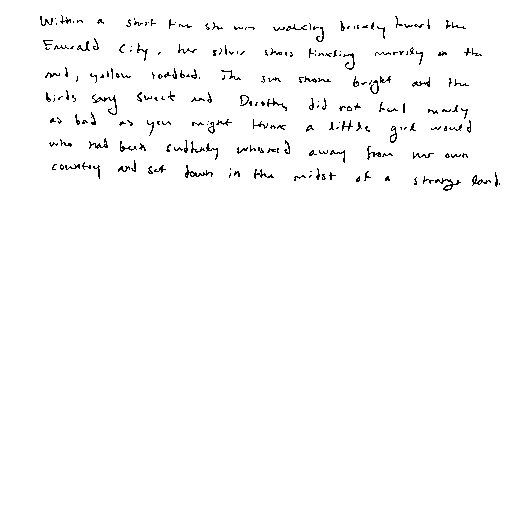 Within a short time she was walking briskly toward the
Emerald City, her silver shoes tinkling merrily on the
hard, yellow roadbed. The sun shone bright and the
birds sang sweet and Dorothy did not feel nearly
as bad as you might think a little girl would
who had been suddenly whisked away from her own
country and set down in the midst of a strange land.